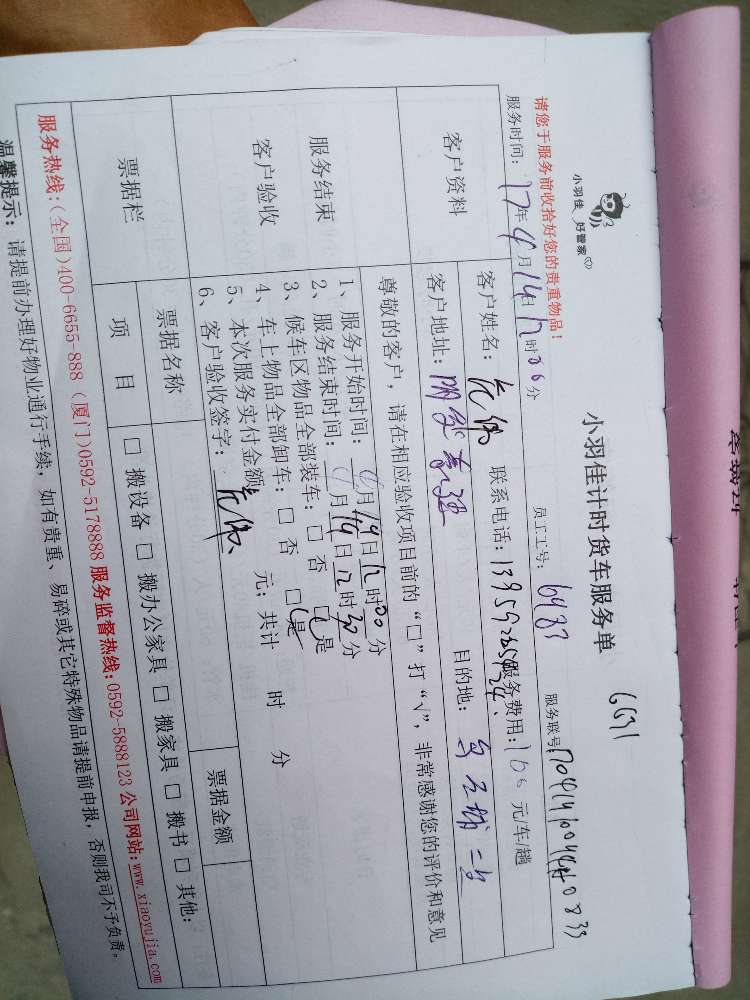 小羽佳 好管家
小羽佳计时货车服务单
6631
请您于服务前收拾好您的贵重物品!
服务时间: 17年4月14日12时00分 员工工号: 6983 服务联号
客户资料
客户姓名: 联系电话: 服务费用: 100 元/车/趟
客户地址: 目的地:
服务结束
客户验收
尊敬的客户，请在相应验收项目前的“□”打“√”，非常感谢您的评价和意见
1、服务开始时间: 月14日12时00分
2、服务结束时间: 月14日12时30分
3、候车区物品全部装车: □ 否 □ 是
4、车上物品全部卸车: □ 否 □ 是
5、本次服务实付金额 元; 共计 时 分
6、客户验收签字:
票据栏
票据名称 票据金额
项 目 □ 搬设备 □ 搬办公家具 □ 搬家具 □ 搬书 □ 其他:
服务热线:(全国)400-6655-888 (厦门)0592-5178888 服务监督热线:0592-5888123 公司网站:www.xiaoyujia.com
温馨提示: 请提前办理好物业通行手续，如有贵重、易碎或其它特殊物品请提前申报，否则我司不予负责，